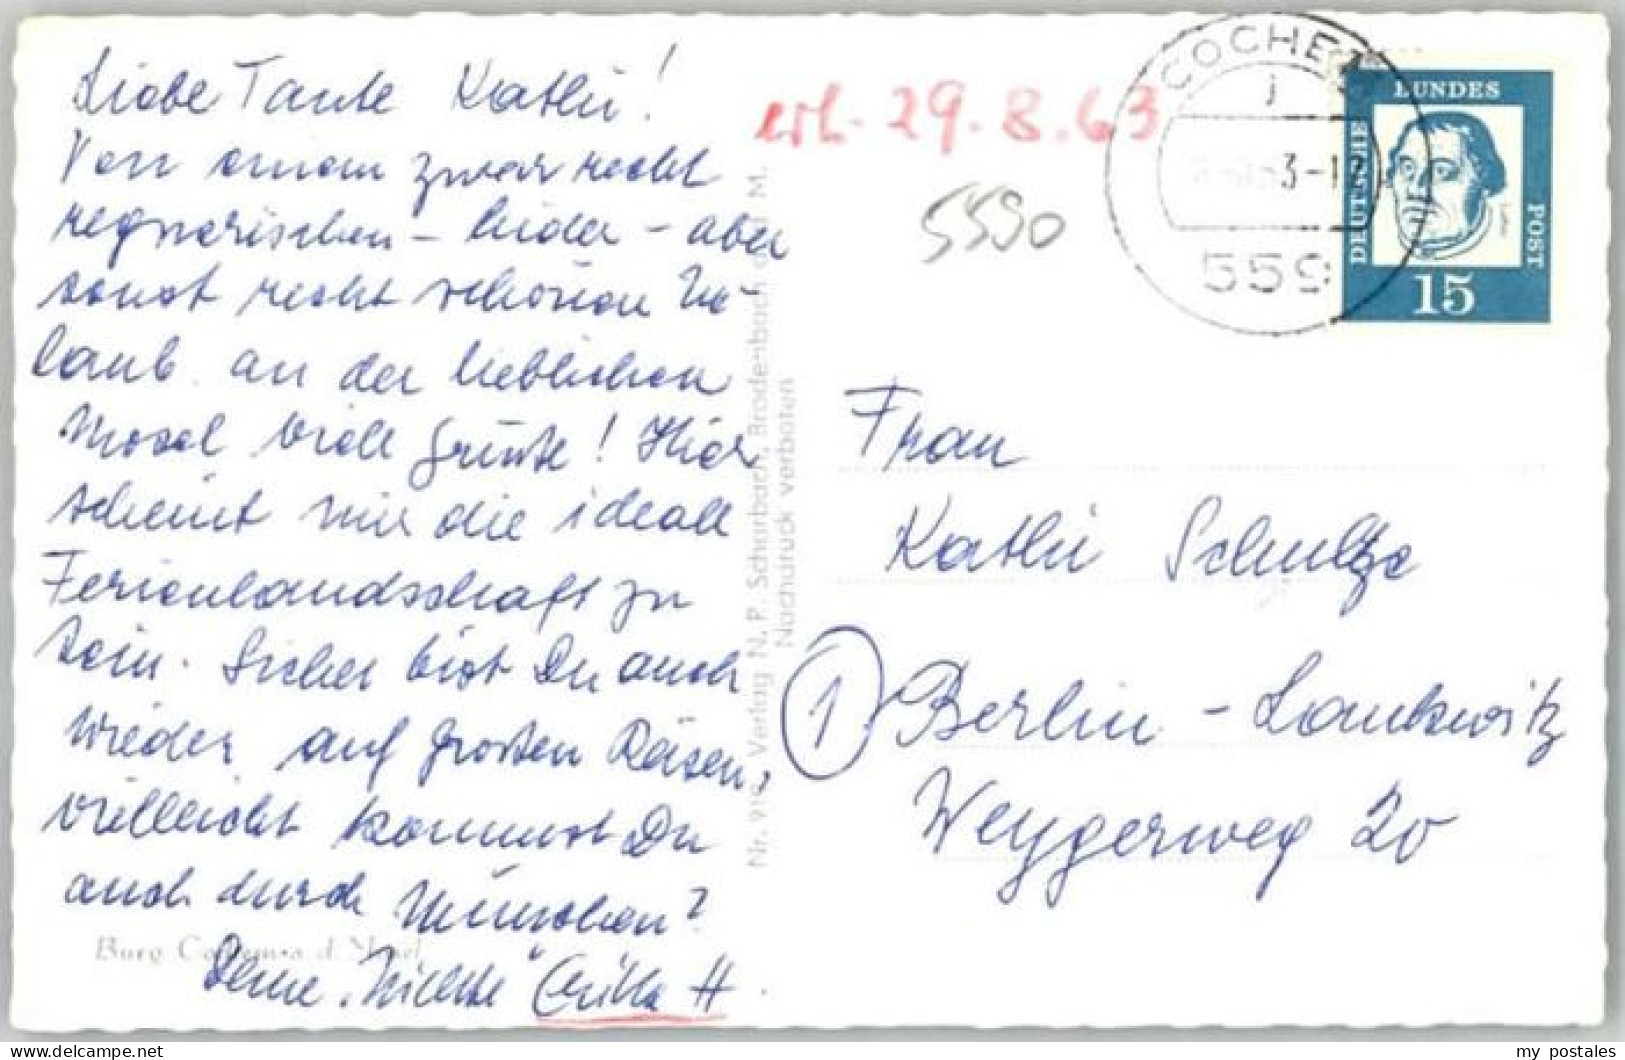 Liebe Tante Käthi!
Von einem zwar recht
regnerischen - leider - aber
sonst recht schönen Ur-
laub an der lieblichen
Mosel viele Grüße! Hier
scheint mir die ideale
Ferienlandschaft zu
sein. Sicher bist Du auch
wieder auf großen Reisen,
vielleicht kommst Du
auch durch München?
Deine "Nichte"
Burg Cochem a. d. Mosel
Nr. 919 Verlag N. P. Schurbach, Brodenbach M.
Nachdruck verboten
erh. 29.8.63
5590
COCHEM
j
3-12
559
DEUTSCHE
BUNDES
POST
15
Frau
Käthi Schultze
1 Berlin - Lankwitz
Weygerweg 20
my postales